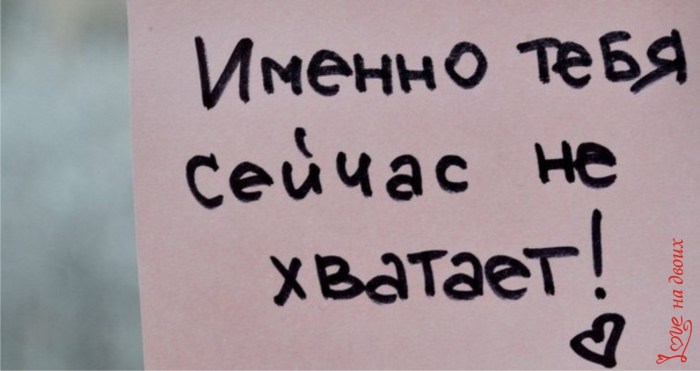 Именно тебя
сейчас не
хватает!
Love на двоих